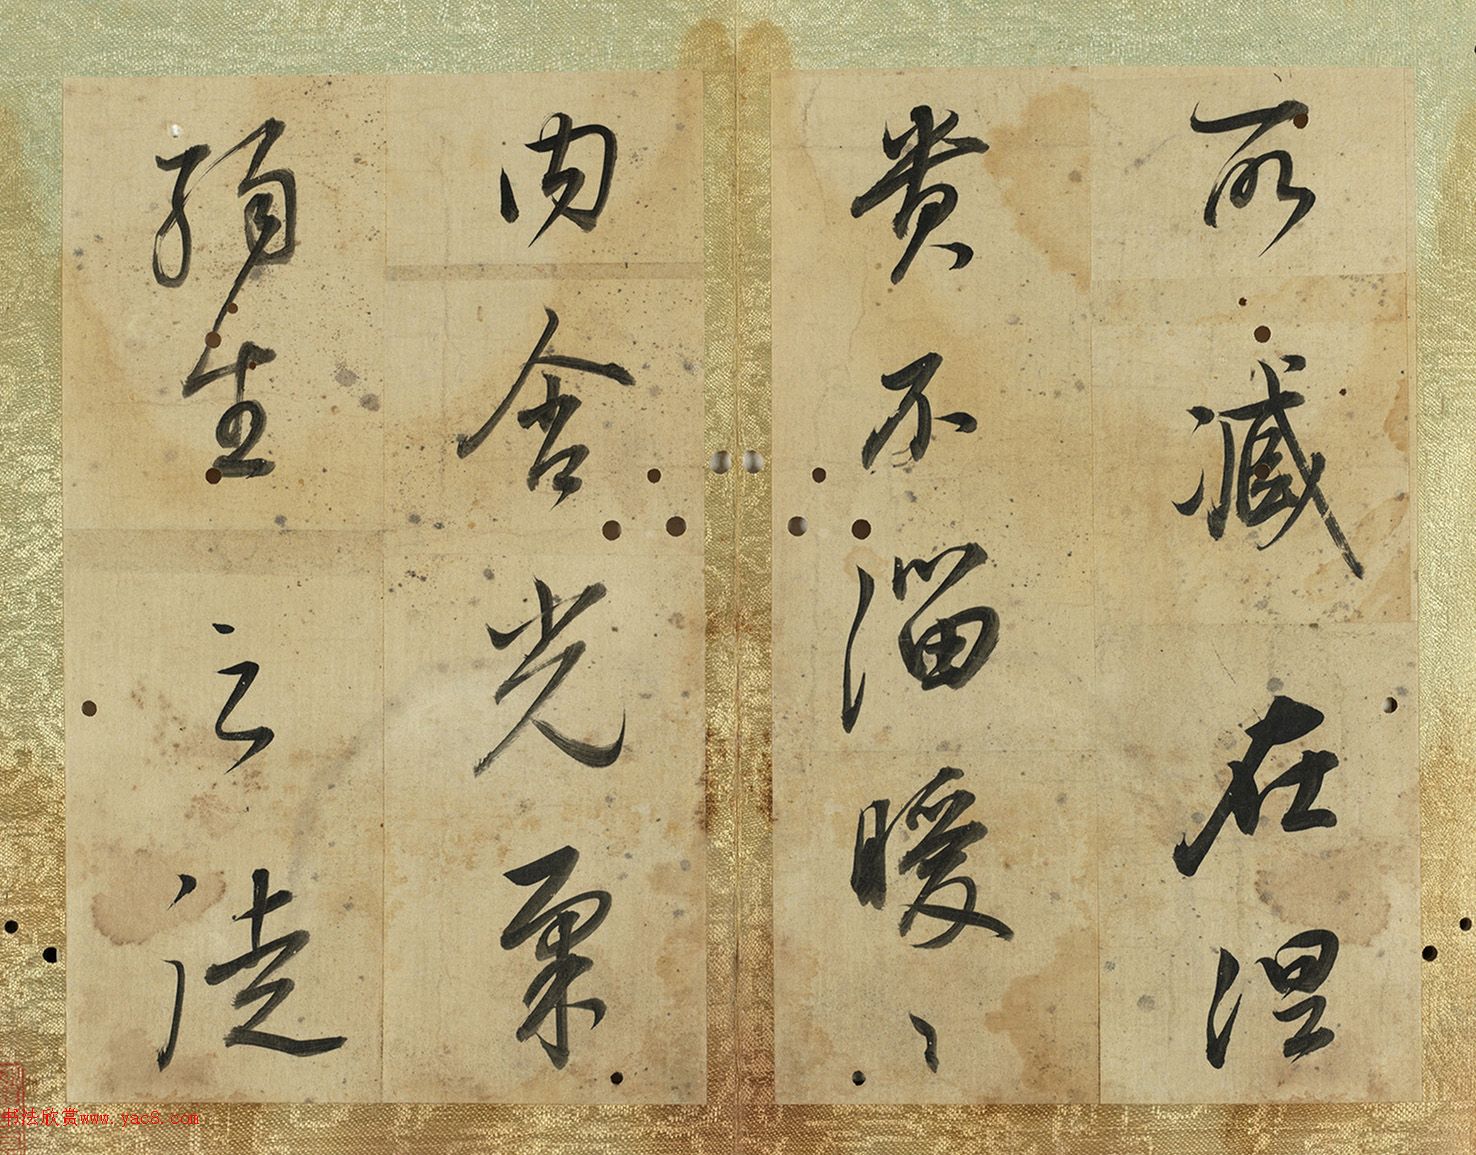 所臧在涅
貴不淄暖〻
内含光柔
弱生之徒
书法欣赏www.yac8.com